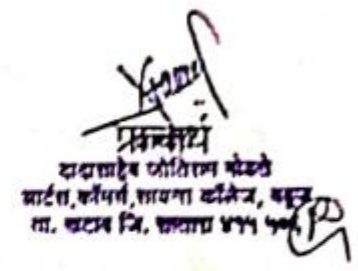 प्राचार्य
दादासाहेब जोतिराम गोडसे
आर्टस, कॉमर्स, सायन्स कॉलेज, वडूज
ता. खटाव जि. सातारा ४१५ ५०६